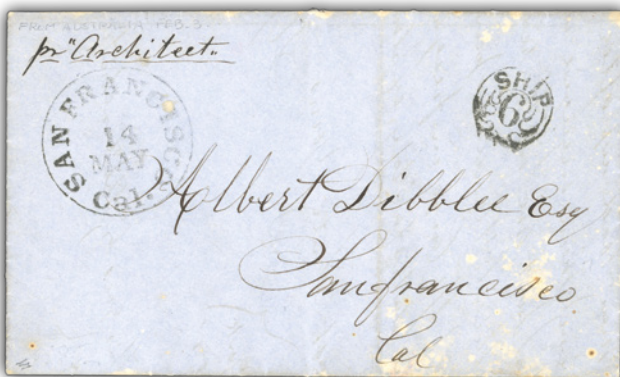 FROM AUSTRALIA FEB. 3
pr "Architect"
SAN FRANCISCO
14
MAY
Cal.
SHIP
6
Albert Dibblee Esq
Sanfrancisco
Cal